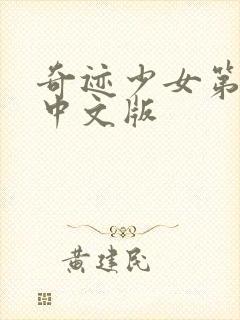 奇迹少女第
中文版
黄建民